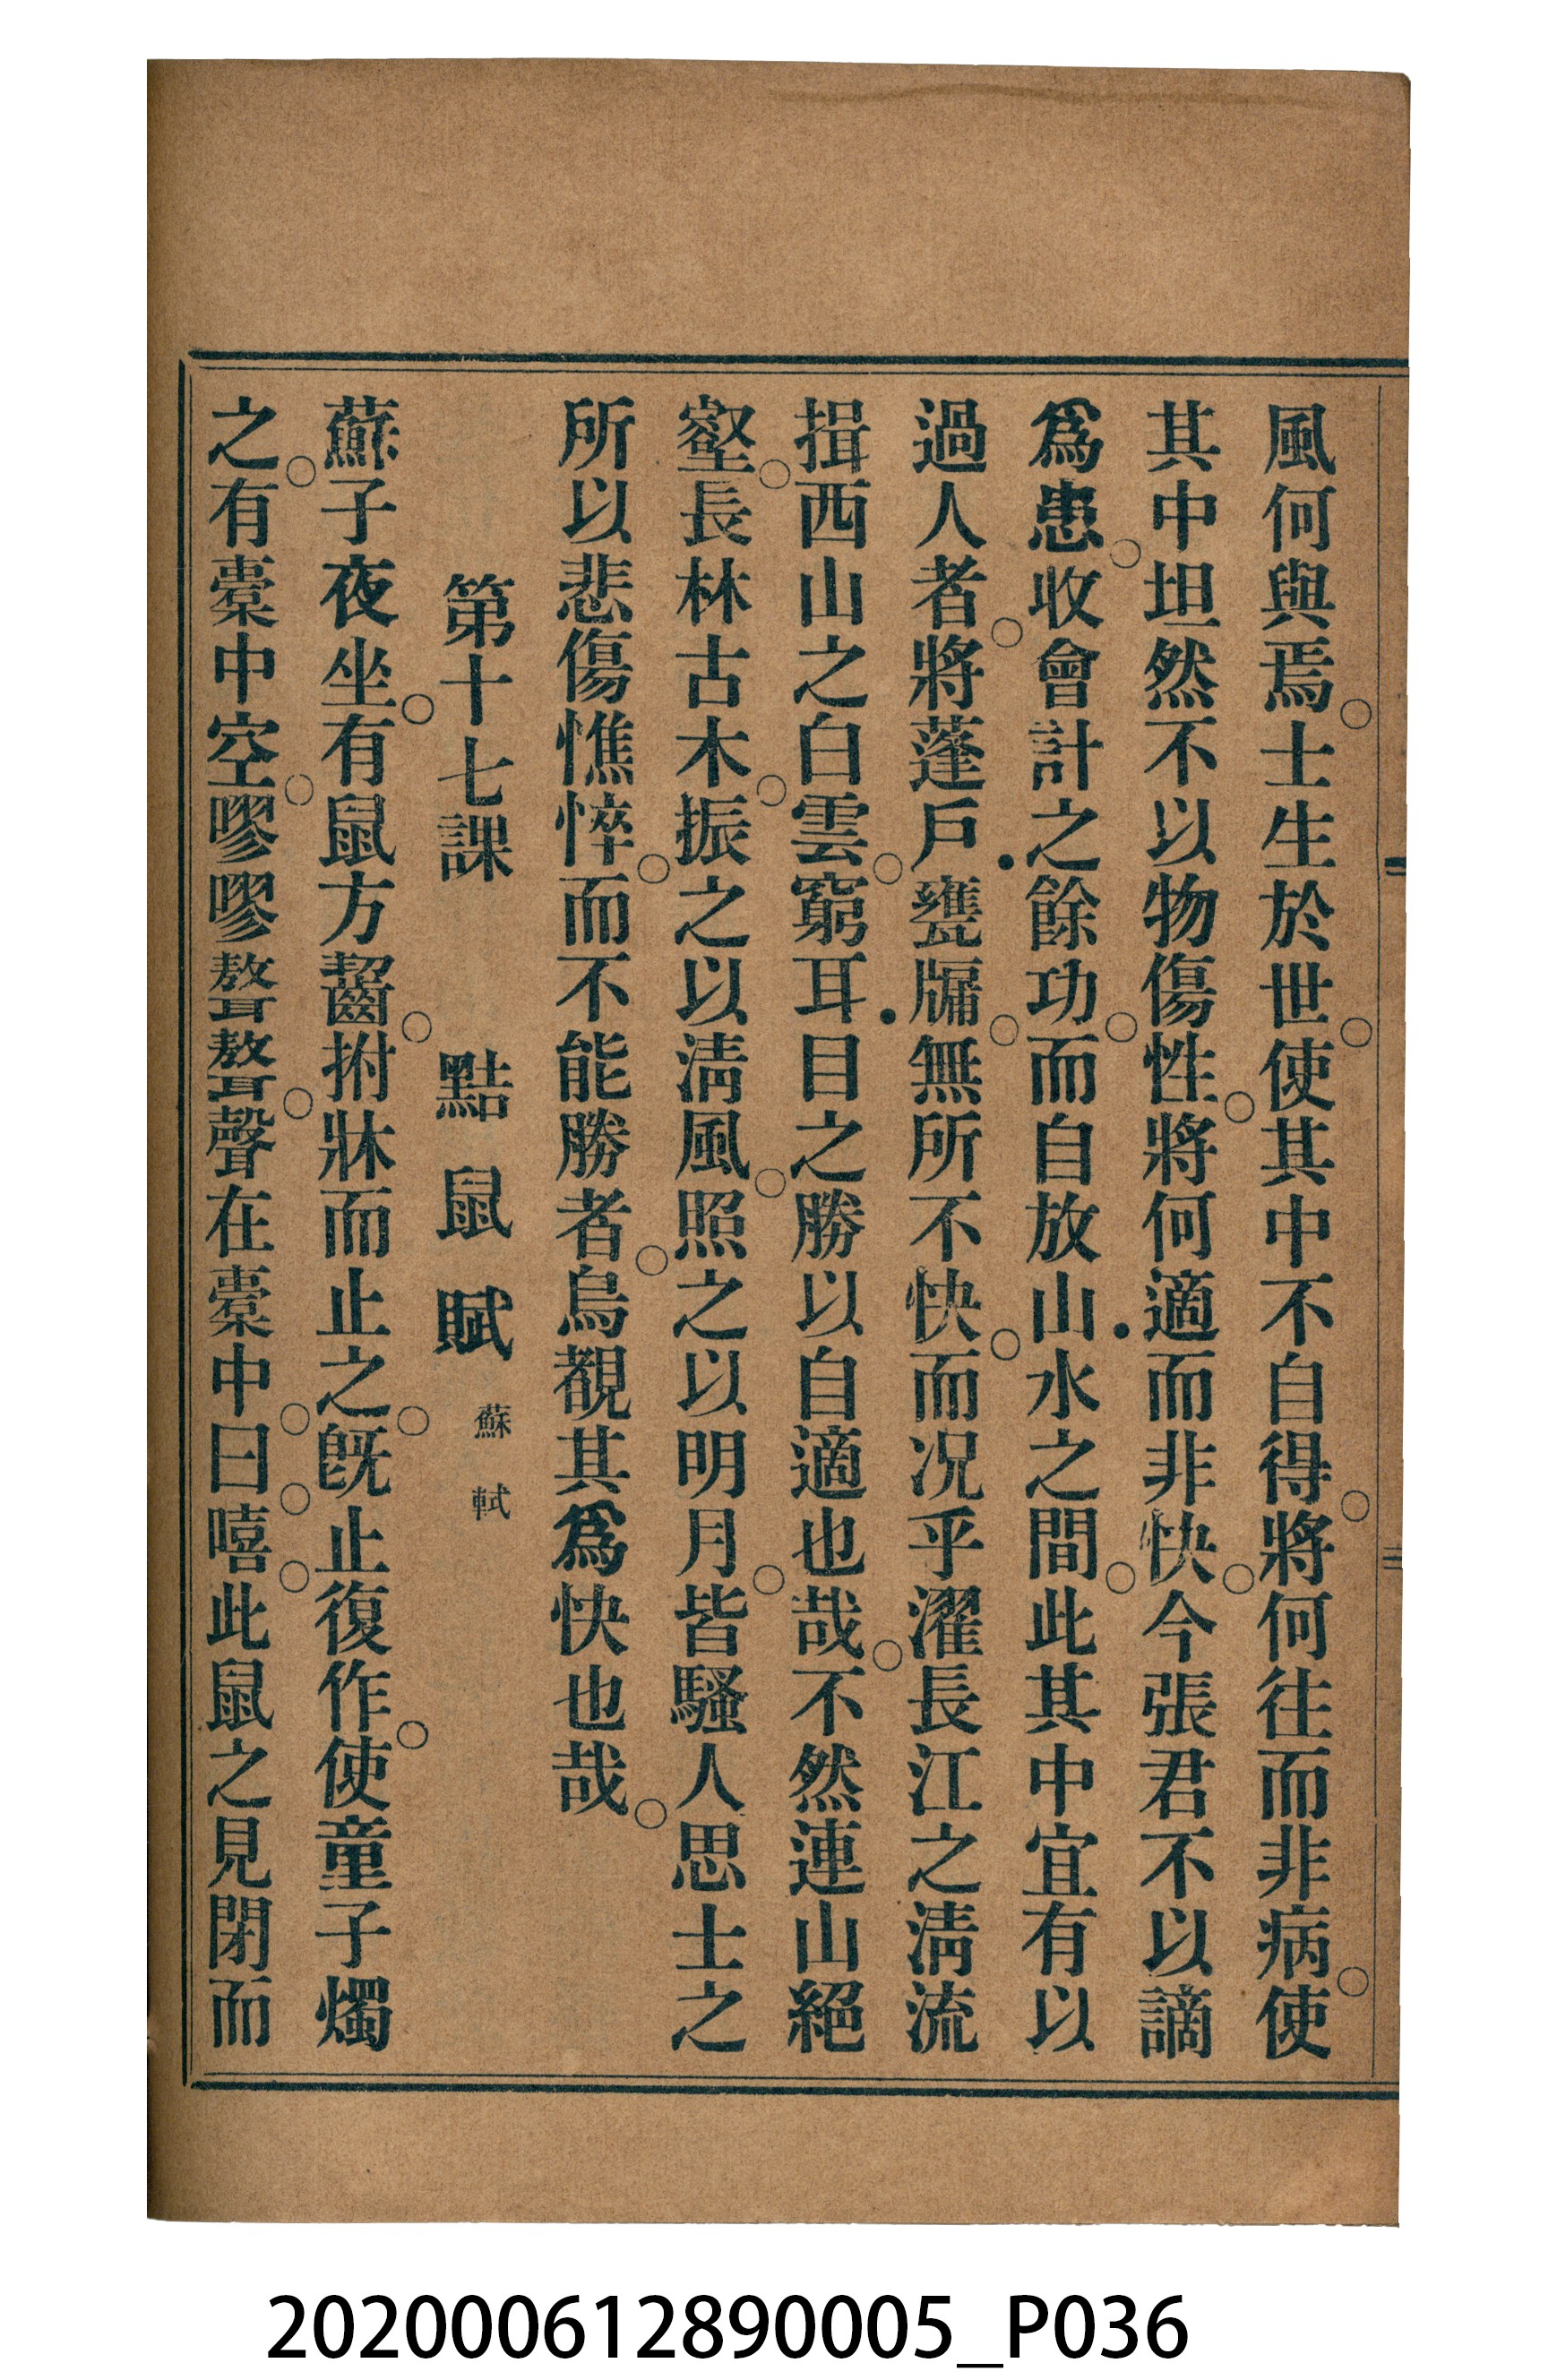 風何與焉。士生於世。使其中不自得。將何往而非病。使
其中坦然不以物傷性。將何適而非快。今張君不以謫
爲患。收會計之餘功。而自放山水之間。此其中宜有以
過人者。將蓬戶•甕牖。無所不快。而况乎濯長江之淸流•
揖西山之白雲。窮耳•目之勝以自適也哉。不然連山絕
壑。長林古木。振之以淸風。照之以明月。皆騷人思士之
所以悲傷憔悴。而不能勝者。烏覩其爲快也哉。
第十七課 黠鼠賦 蘇軾
蘇子夜坐。有鼠方齧。拊牀而止之。旣止復作。使童子燭
之。有橐中空。嘐嘐聱聱。聲在橐中。曰。嘻。此鼠之見閉而
三
202000612890005_P036